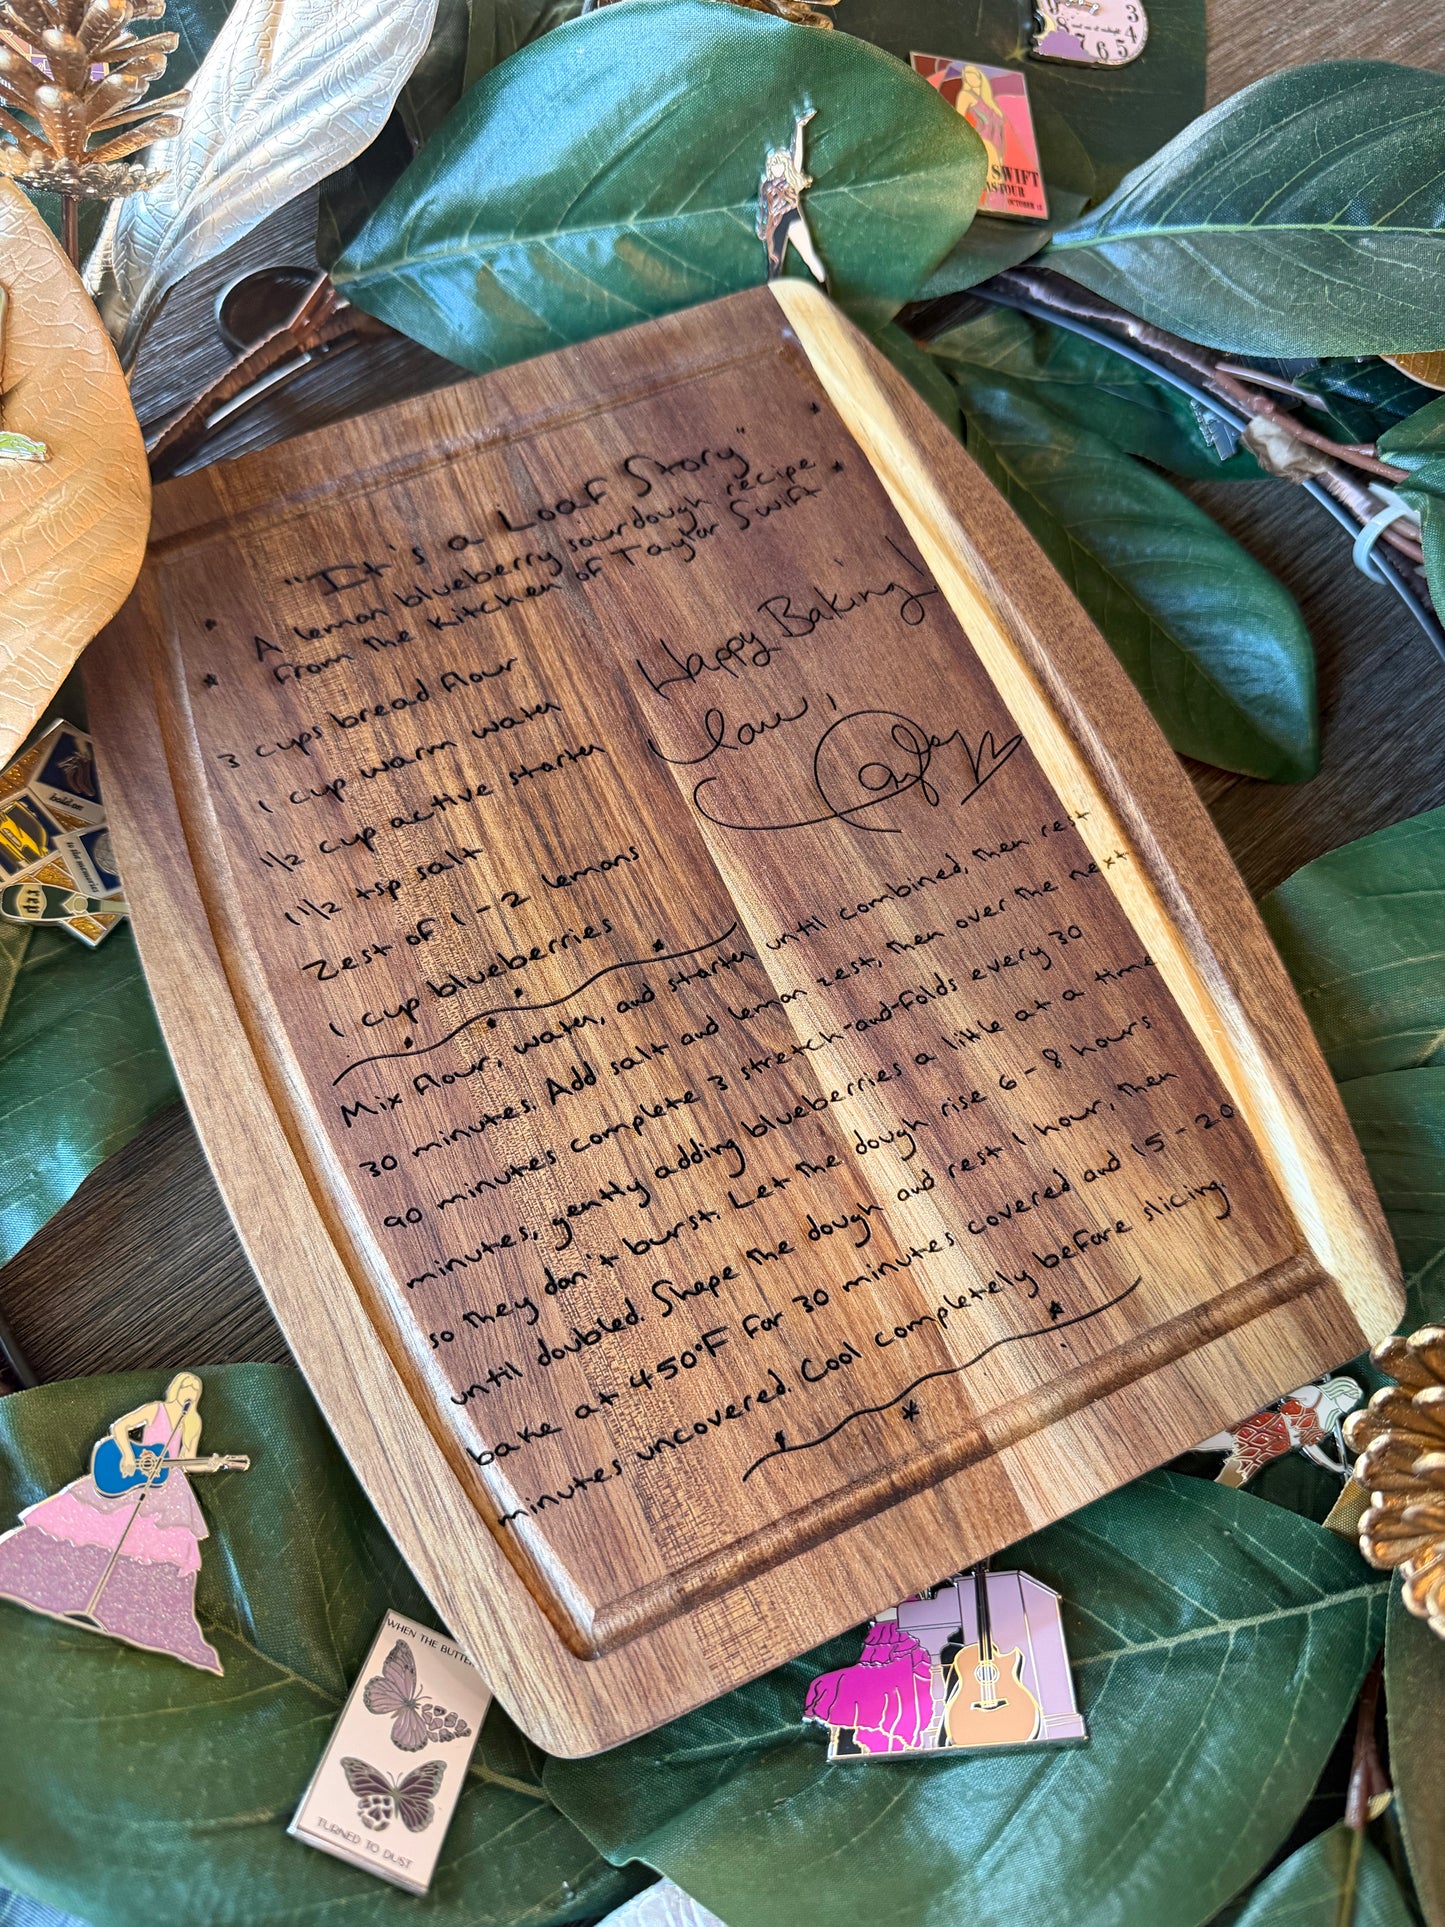 "It's a Loaf Story"
A lemon blueberry sourdough recipe
from the kitchen of Taylor Swift
3 cups bread flour
1 cup warm water
1/2 cup active starter
1 1/2 tsp salt
Zest of 1-2 lemons
1 cup blueberries
Happy Baking!
Love,
Taylor
Mix flour, water, and starter until combined, then rest
30 minutes. Add salt and lemon zest, then over the next
90 minutes complete 3 stretch-and-folds every 30
minutes, gently adding blueberries a little at a time
so they don't burst. Let the dough rise 6-8 hours
until doubled. Shape the dough and rest 1 hour, then
bake at 450°F for 30 minutes covered and 15-20
minutes uncovered. Cool completely before slicing.
SWIFT
OCTOBER 13
3
4
5
6
7
8
hold on
to the memories
rep
WHEN THE BUTTER
TURNED TO DUST